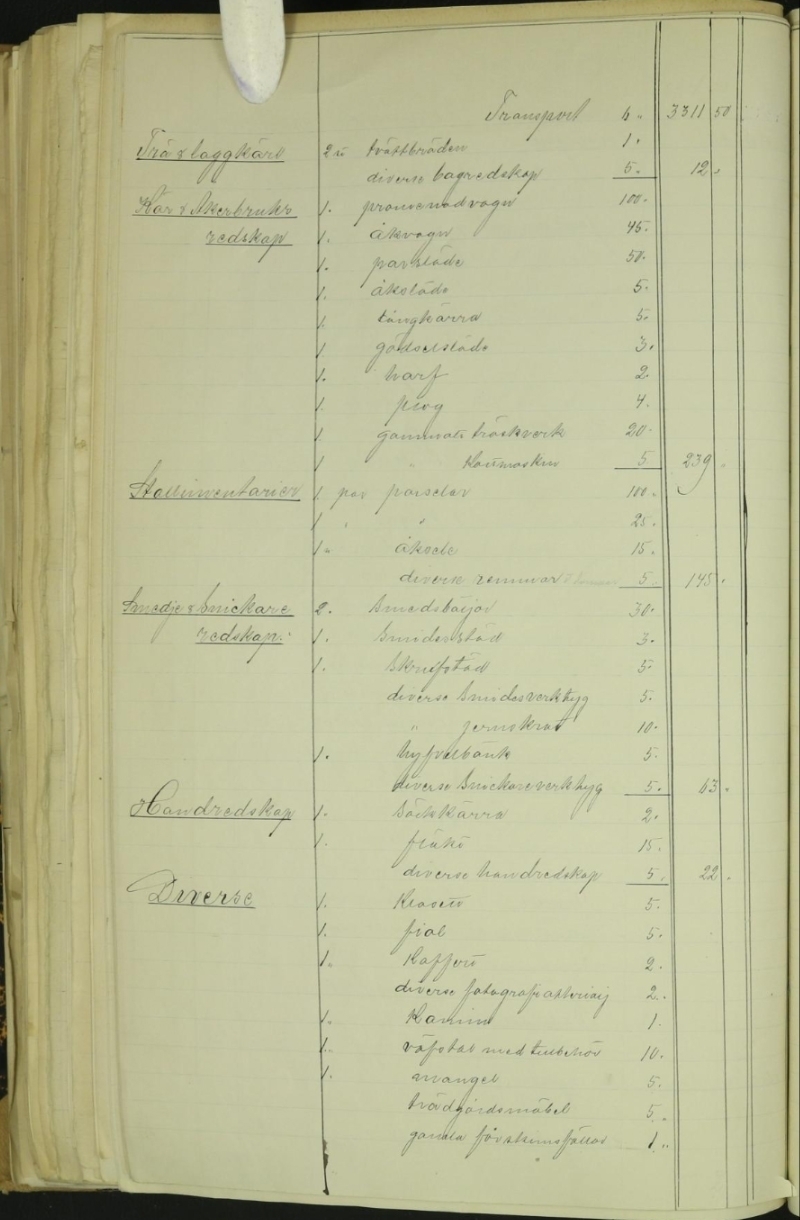 Transport 6 „ 3311 50
Trä & laggkärl 2 st tvättbräden 1 „
diverse bagredskap 5 „ 12 „
Kör & Åkerbruks 1. promenadvagn 100 „
redskap 1. åkvagn 45 „
1. parsläde 50 „
1. åksläde 5 „
1. långkärra 5 „
1 gödselsläde 3 „
1. harf 2
1. plog 4 „
1 gammalt tröskverk 20 „
1 „ 5 239 „
Stallinventarier 1 par parselar 100 „
1 „ „ 25 „
1 „ åksele 15 „
diverse remmar 5 „ 145 „
Smedje & Snickare 2. Smedsbäljor 30 „
redskap. 1. Smidesstäd 3 „
1. Skrufstäd 5 „
diverse Smidesverktyg 5 „
„ jernskrot 10 „
1. hyfvelbänk 5 „
diverse Snickareverktyg 5 „ 63 „
Handredskap 1. Säckkärra 2 „
1. 15 „
diverse handredskap 5 „ 22 „
Diverse 1. 5 „
1. fiol 5 „
1. Koffert 2 „
diverse 2 „
1. Kamin 1
1. väfstol med tillbehör 10 „
1. mangel 5 „
trädgårdsmöbel 5 „
gamla fårskinnsfällar 1 „